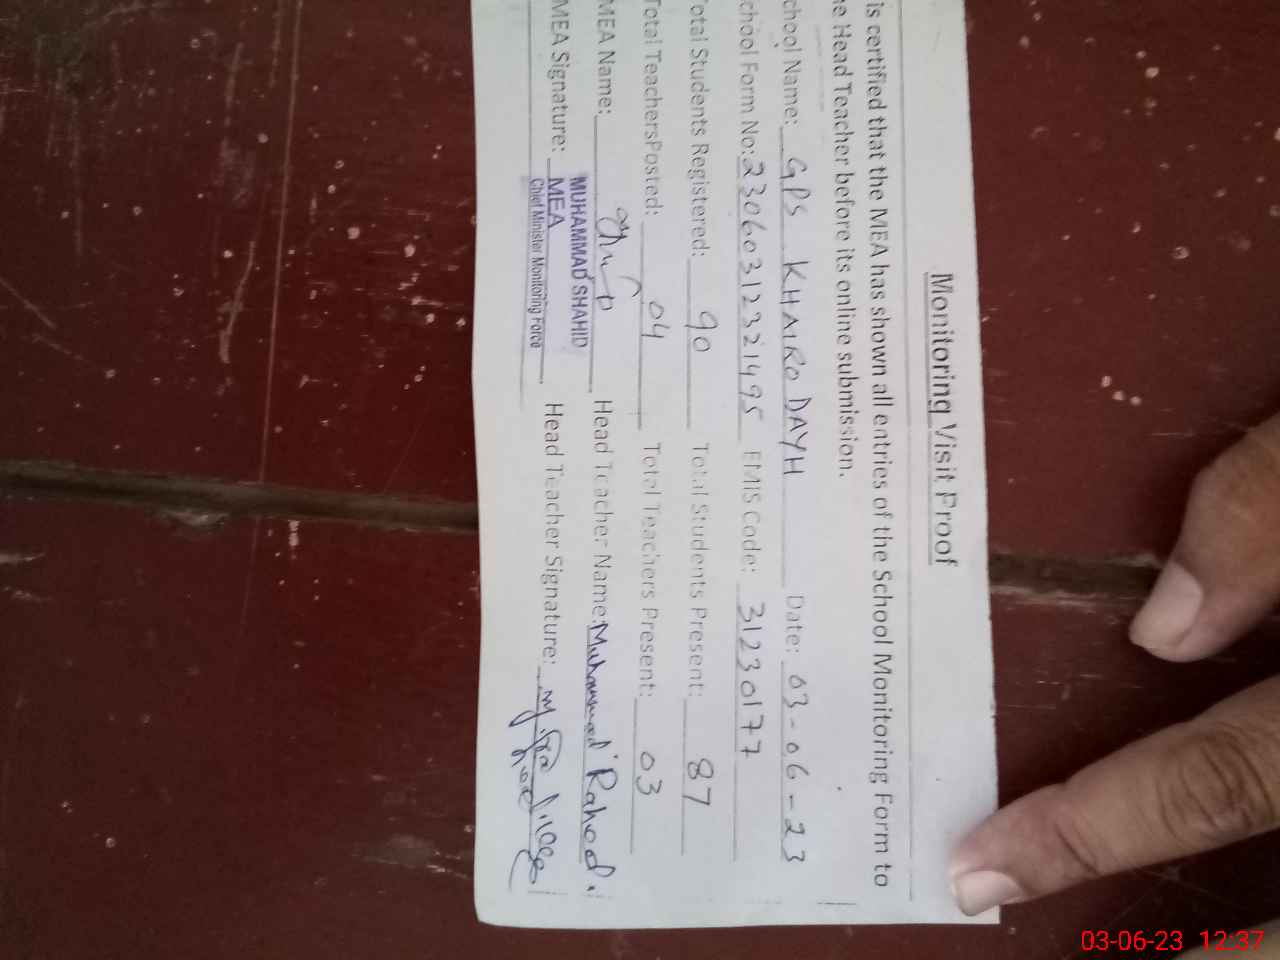 Monitoring Visit Proof
is certified that the MEA has shown all entries of the School Monitoring Form to
e Head Teacher before its online submission.
chool Name: GPS KHAIRO DAYH Date: 03-06-23
chool Form No: 230603123221495 EMIS Code: 31230177
otal Students Registered: 90 Total Students Present: 87
Total TeachersPosted: 04 Total Teachers Present: 03
MEA Name: Head Teacher Name: Muhammad
MUHAMMAD SHAHID
MEA Signature: MEA Head Teacher Signature:
Chief Minister Monitoring Force
03-06-23 12:37